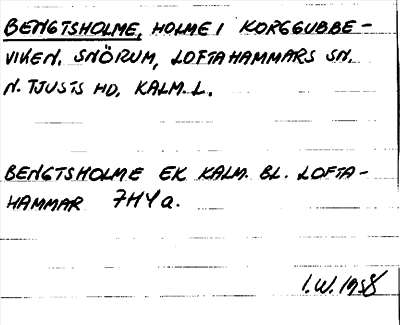 BENGTSHOLME, HOLME I KORGGUBBE-
VIKEN. SNÖRUM, LOFTAHAMMARS SN.
N. TJUSTS HD. KALM. L.
BENGTSHOLME EK KALM. BL. LOFTA-
HAMMAR 7H4a.
I.W. 1958